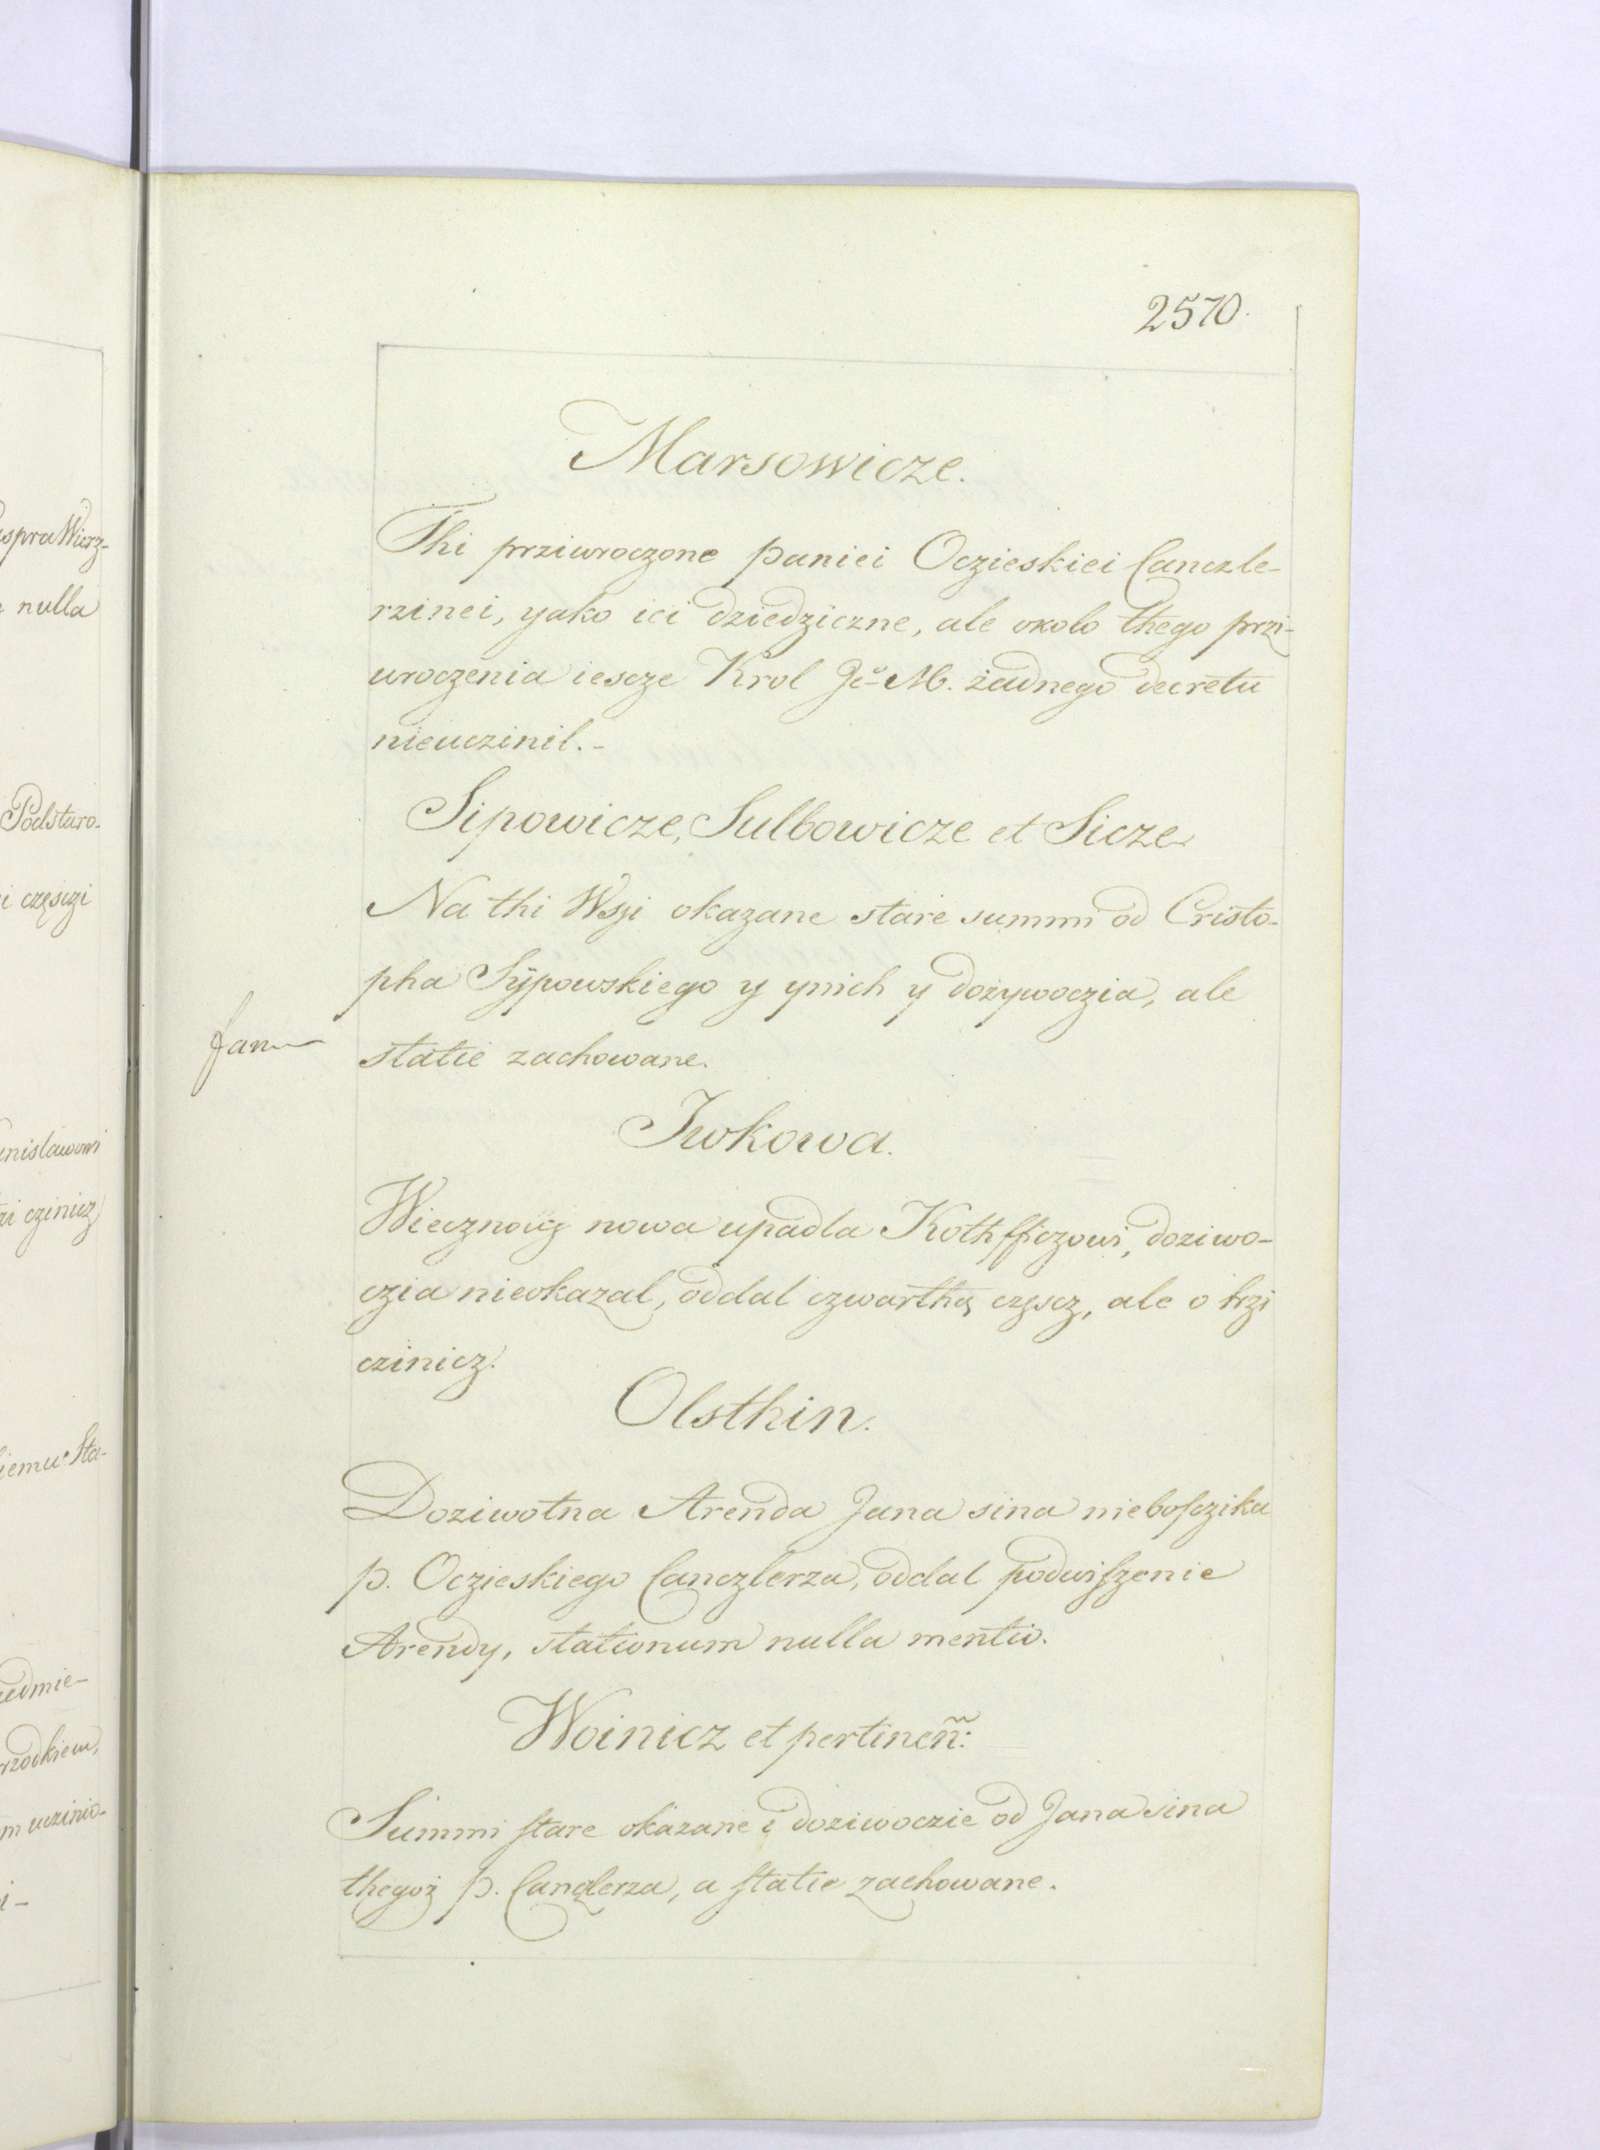 2570.
Marsowicze.
Thi prziwroczone paniei Oczieskiei Canczle-
rzinei, yako iei dziedziczne, ale około thego przi-
wroczenia iescze Krol Jeo M. żadnego decretu
nieuczinil.-
Sipowicze, Sulbowicze et Sicze
Na thi Wszi okazane stare summi od Cristo-
pha Sÿpowskiego y ynich y dożywoczia, ale
statie zachowane.
Iwkowa.
Wiecznoscz nowa upadla Kothfficzowi, doziwo-
czia nieokazal, oddal czwarthą częscz, ale o trzi
czinicz.
Olsthin.
Doziwotna Arenda Jana sina nieboſczika
p. Oczieskiego Canczlerza, oddal podwiſzenie
Arendy, stationum nulla mentio.
Woinicz et pertineñ:
Summi ſtare okazane i doziwoczie od Jana sina
thegoż p. Canclerza, a ſtatie zachowane.
aspra Wierz-
nulla
Podstaro-
i częsczi
anislawowi
czinicz
iemu Sta-
edmie-
rzodkiem,
m uczinio-
i-